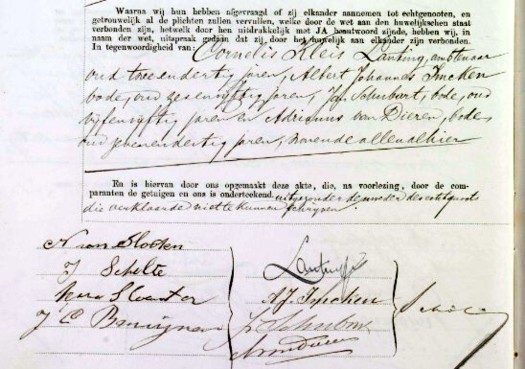 Waarna wij hun hebben afgevraagd of zij elkander aannemen tot echtgenooten, en
getrouwelijk al de plichten zullen vervullen, welke door de wet aan den huwelijkschen staat
verbonden zijn, hetwelk door hen uitdrukkelijk met JA beantwoord zijnde, hebben wij, in
naam der wet, uitspraak gedaan dat zij door het huwelijk aan elkander zijn verbonden.
In tegenwoordigheid van: Cornelis Kleis Lanting, ambtenaar
oud twee endertig jaren, Albert Johannes
bode, oud zes en vijftig jaren, Schubart, bode, oud
vijfenvijftig jaren en Adrianus van Dieren, bode,
oud zevenendertig jaren, wonende allen alhier
En is hiervan door ons opgemaakt deze akte, die, na voorlezing, door de com-
paranten de getuigen en ons is onderteekend, uitgezonderd de moeder des echtgenoots
die verklaarde niet te kunnen schrijven.
N van Slooten
J Schelte
Lanting
A.J.
J C